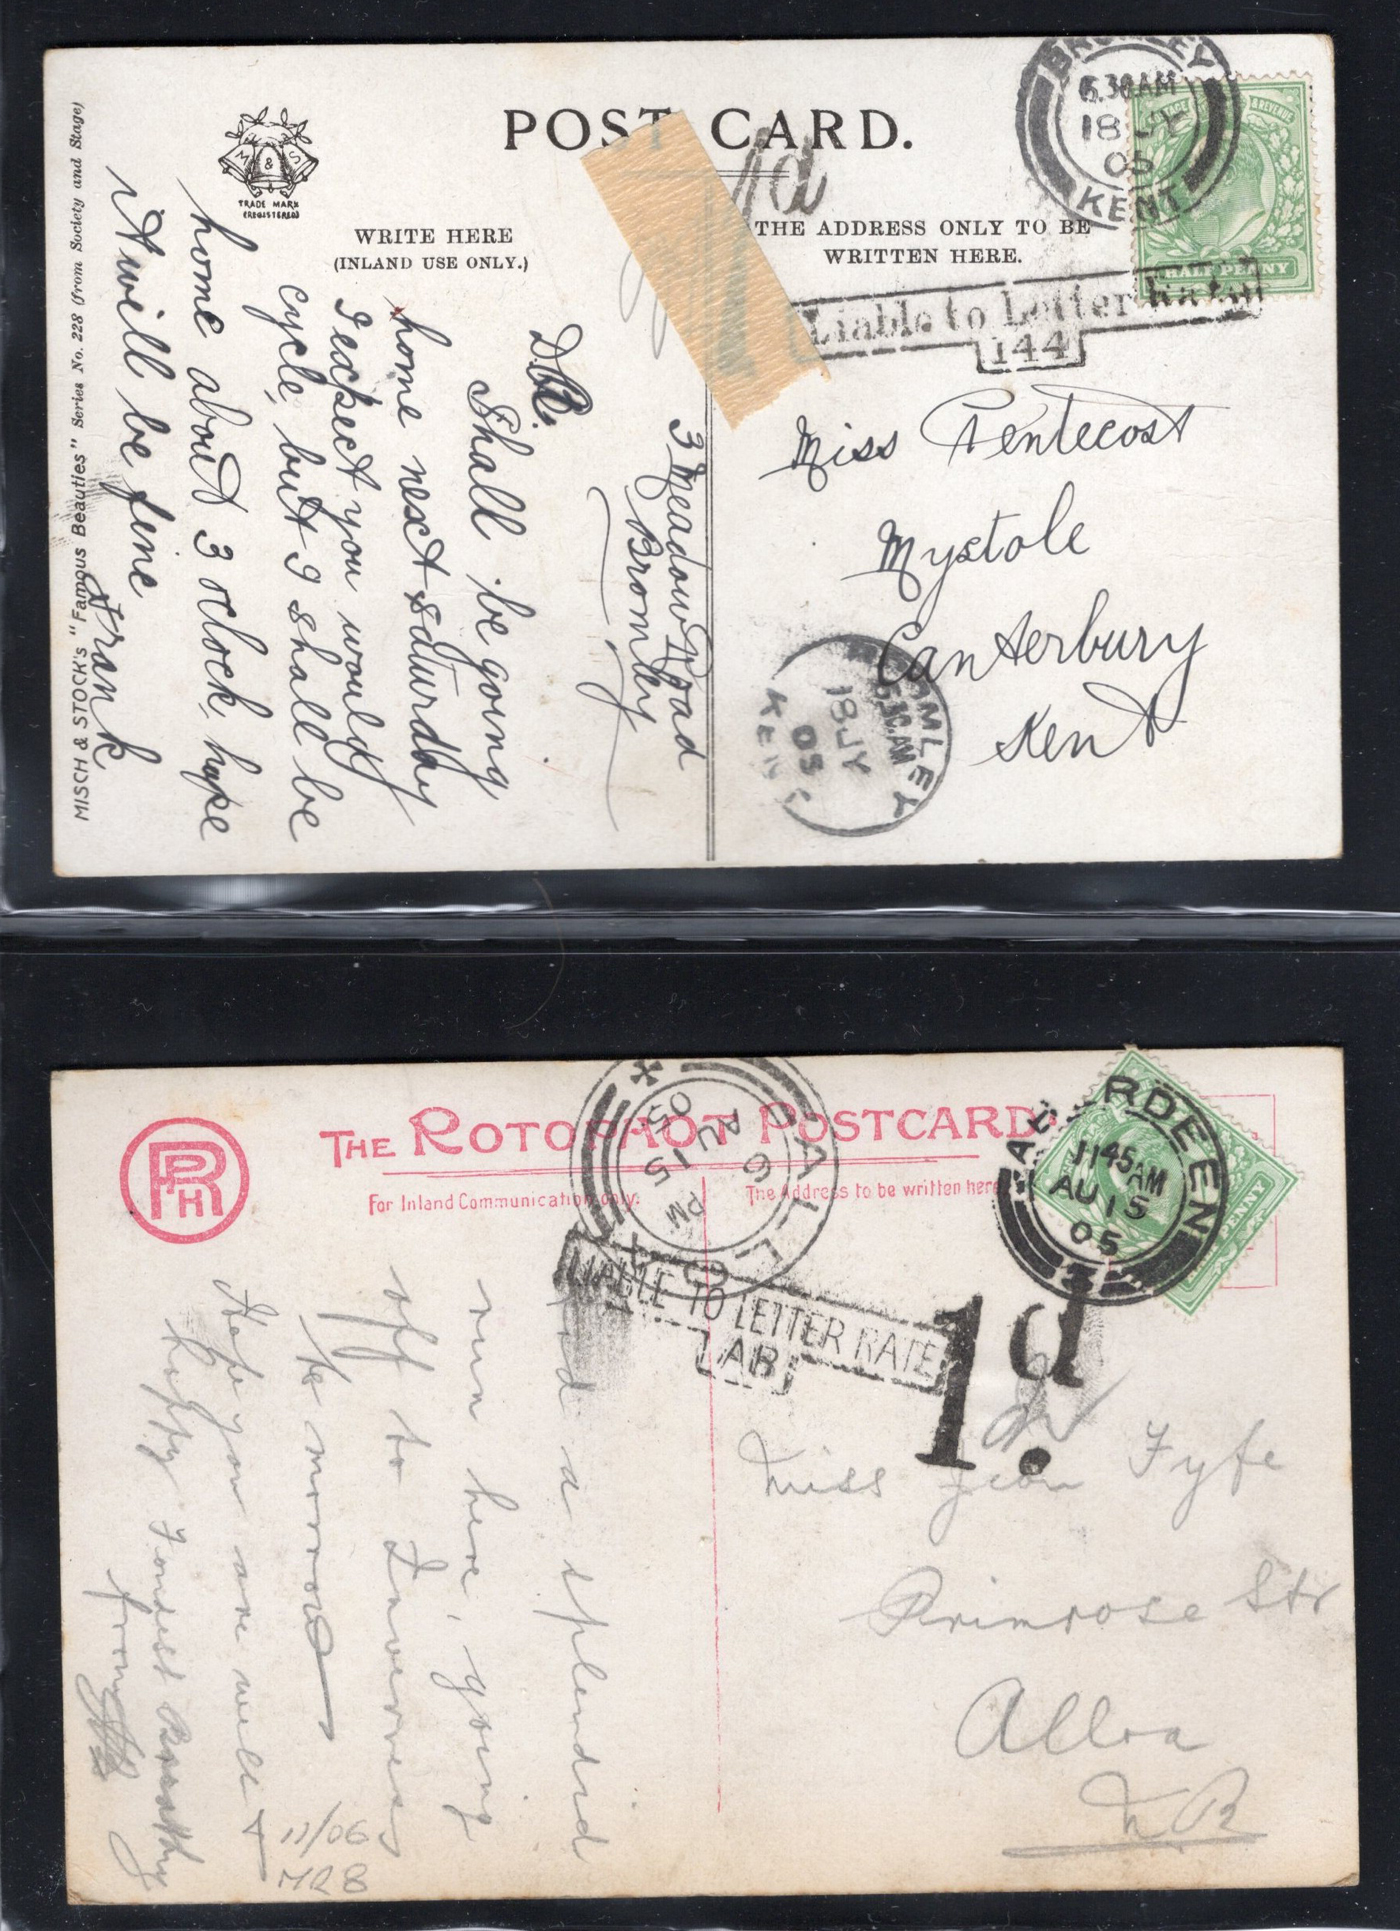 POST CARD.
M & S
TRADE MARK
(REGISTERED)
WRITE HERE
(INLAND USE ONLY.)
THE ADDRESS ONLY TO BE
WRITTEN HERE.
MISCH & STOCK'S "Famous Beauties" Series No. 228 (from Society and Stage)
BROMLEY
6.30AM
18 JY
05
KENT
HALF PENNY
1d
Liable to Letter Rate
144
3 Meadow Road
Bromley
Shall be going
home next saturday
I expect you would
cycle, but I shall be
home about 3 oclock, hope
it will be fine
Frank
Miss Pentecost
Mystole
Canterbury
Kent
BROMLEY
18 JY
05
KENT
RPH
THE ROTOPHOT POSTCARD
For Inland Communication only.
The Address to be written here
ABERDEEN
1145AM
AU 15
05
3
PENNY
6 PM
AU 15
05
LIABLE TO LETTER RATE
AB
1d.
a splendid
run here, going
off to Inverness
to morrow
Hope you are well &
happy Fondest
from
Miss Jean Fyfe
Primrose Str
Alloa
NB
11/06